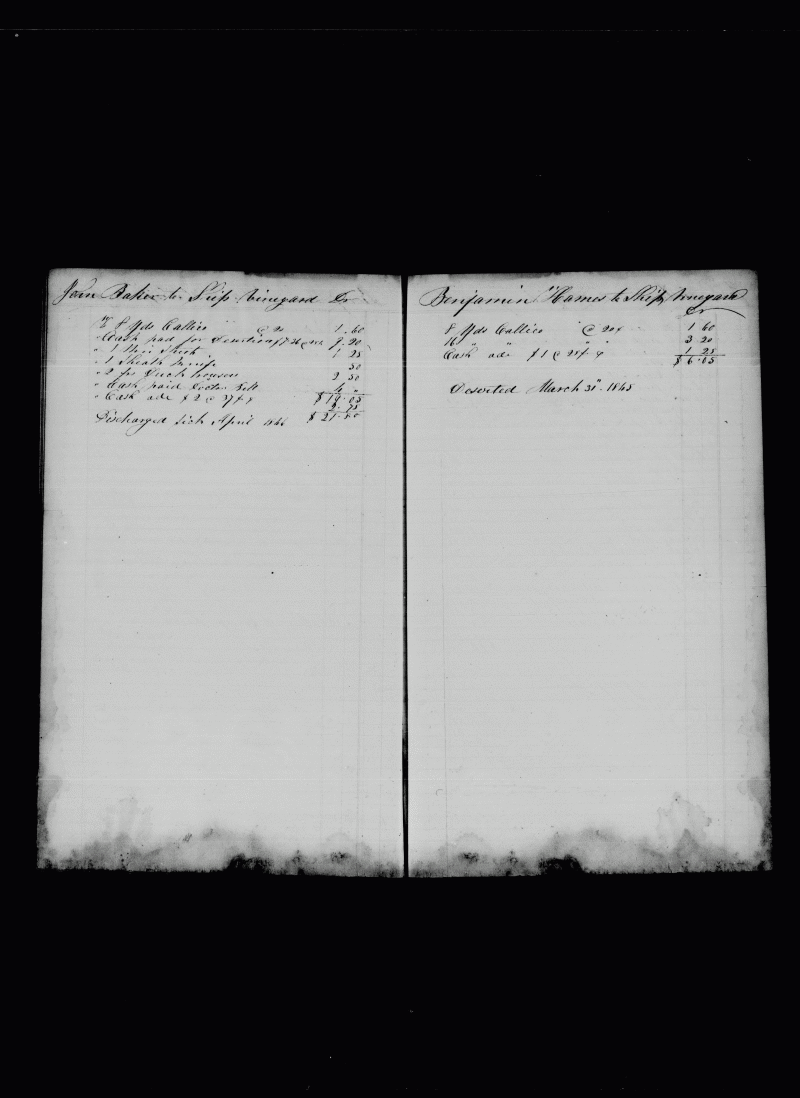 Baker to Ship Vineyard Dr
8 Yds Callico @ 20 1.60
" Cash paid for 9.20
" 1 1 25
" 1 Sheath Knife 50
" 2 pr Duck trousers 2 50
" Cash paid Doctor 4 "
" Cash adv $ 2 @ $19.05
2.75
Discharged Sick April $21.80
Benjamin Hames to Ship Vineyard
Dr
8 Yds Callico @ 20 1 60
16 " " " " 3 20
Cash adv $ 1 @ 25 1 25
$ 6.05
Deserted March 31" 1845